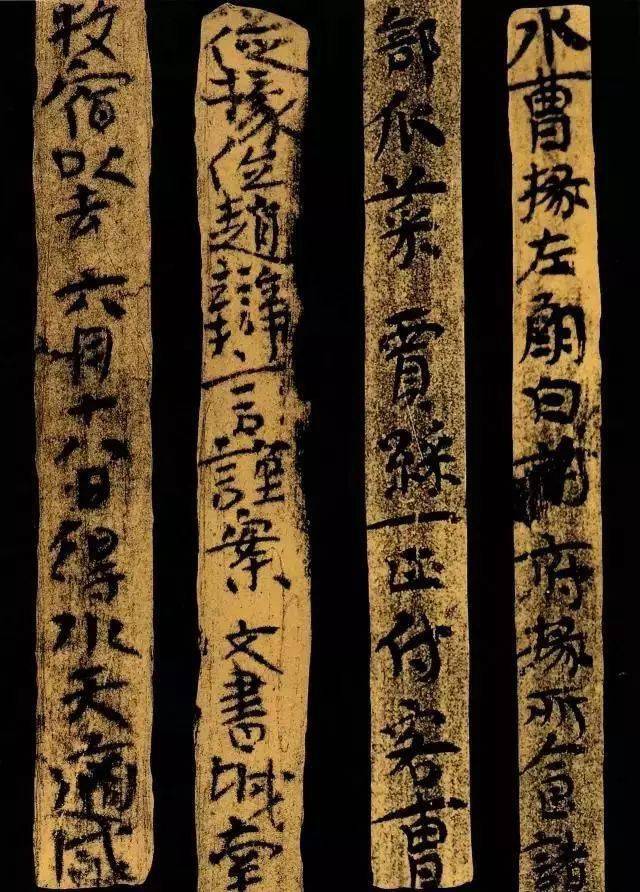 水曹掾左朗白前府掾所食諸
部瓜菜 賈綵一匹付客曹
從掾位趙辯言謹案文書城南
牧宿以去 六月十八日得水天適盛